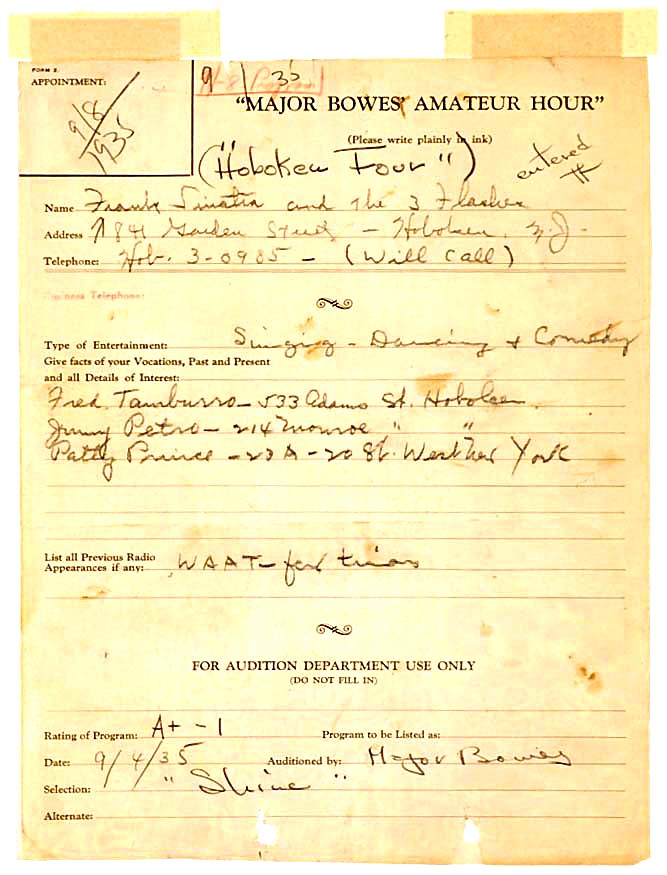 FORM 2.
APPOINTMENT:
9/8/1935
9/ 35
"MAJOR BOWES' AMATEUR HOUR"
(Please write plainly in ink)
("Hoboken Four")
entered
Name Frank Sinatra and the 3 Flashes
Address 841 Garden Street - Hoboken, N.J.
Telephone: Hob. 3-0985 - (Will Call)
Business Telephone:
Type of Entertainment: Singing - Dancing + Comedy
Give facts of your Vocations, Past and Present
and all Details of Interest:
Fred Tamburro - 533 Adams St. Hoboken.
Jimmy Petro - 214 Monroe " "
Patty Prince - 23 A - 20 St. West New York
List all Previous Radio
Appearances if any: WAAT - few times
FOR AUDITION DEPARTMENT USE ONLY
(DO NOT FILL IN)
Rating of Program: A+ - 1 Program to be Listed as:
Date: 9/4/35 Auditioned by: Major Bowes
Selection: "Shine"
Alternate: